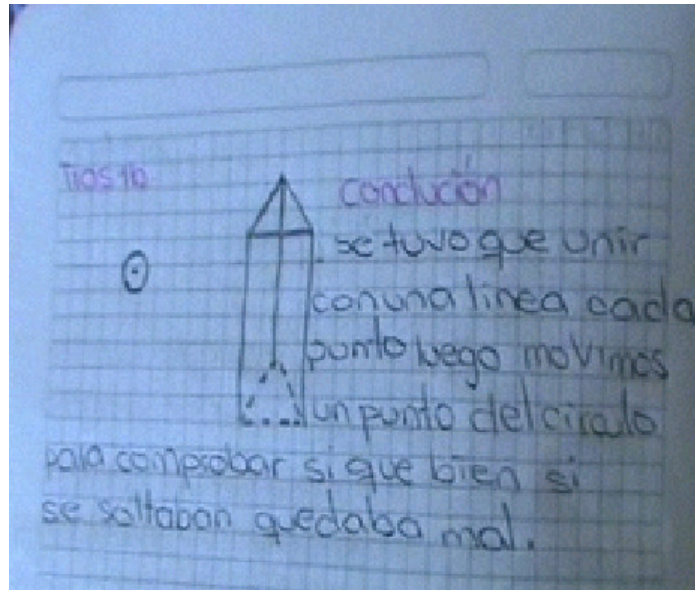 conclución
. se tuvo que unir
con una linea cada
punto luego movimos
un punto del circulo
para comprobar si que bien si
se soltaban quedaba mal.